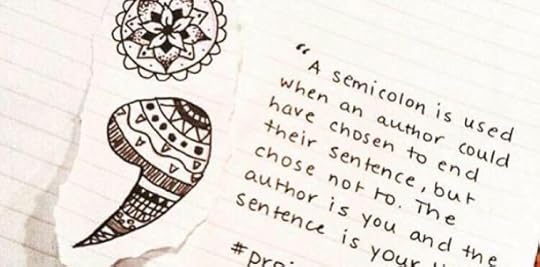 “A semicolon is used
when an author could
have chosen to end
their sentence, but
chose not to. The
author is you and the
sentence is your